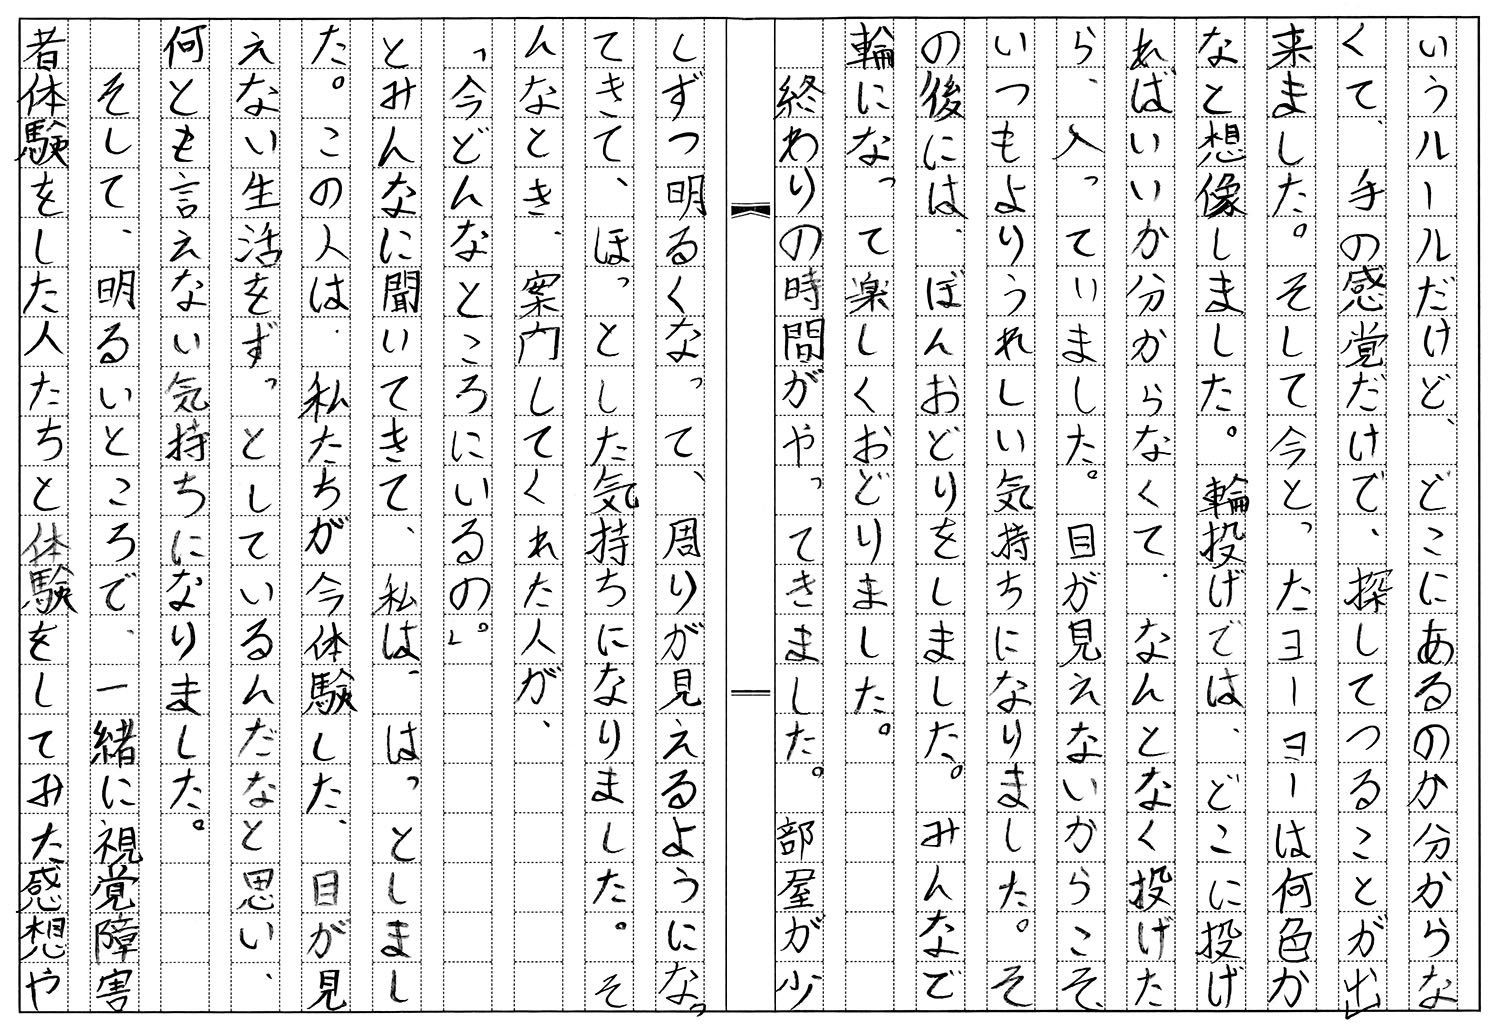 いうルールだけど、どこにあるのか分からな
くて、手の感覚だけで、探してつることが出
来ました。そして今とったヨーヨーは何色か
なと想像しました。輪投げでは、どこに投げ
ればいいか分からなくて、なんとなく投げた
ら、入っていました。目が見えないからこそ、
いつもよりうれしい気持ちになりました。そ
の後には、ぼんおどりをしました。みんなで
輪になって楽しくおどりました。
終わりの時間がやってきました。部屋が少
しずつ明るくなって、周りが見えるようになっ
てきて、ほっとした気持ちになりました。そ
んなとき、案内してくれた人が、
「今どんなところにいるの。」
とみんなに聞いてきて、私は、はっとしまし
た。この人は、私たちが今体験した、目が見
えない生活をずっとしているんだなと思い、
何とも言えない気持ちになりました。
そして、明るいところで、一緒に視覚障害
者体験をした人たちと体験をしてみた感想や